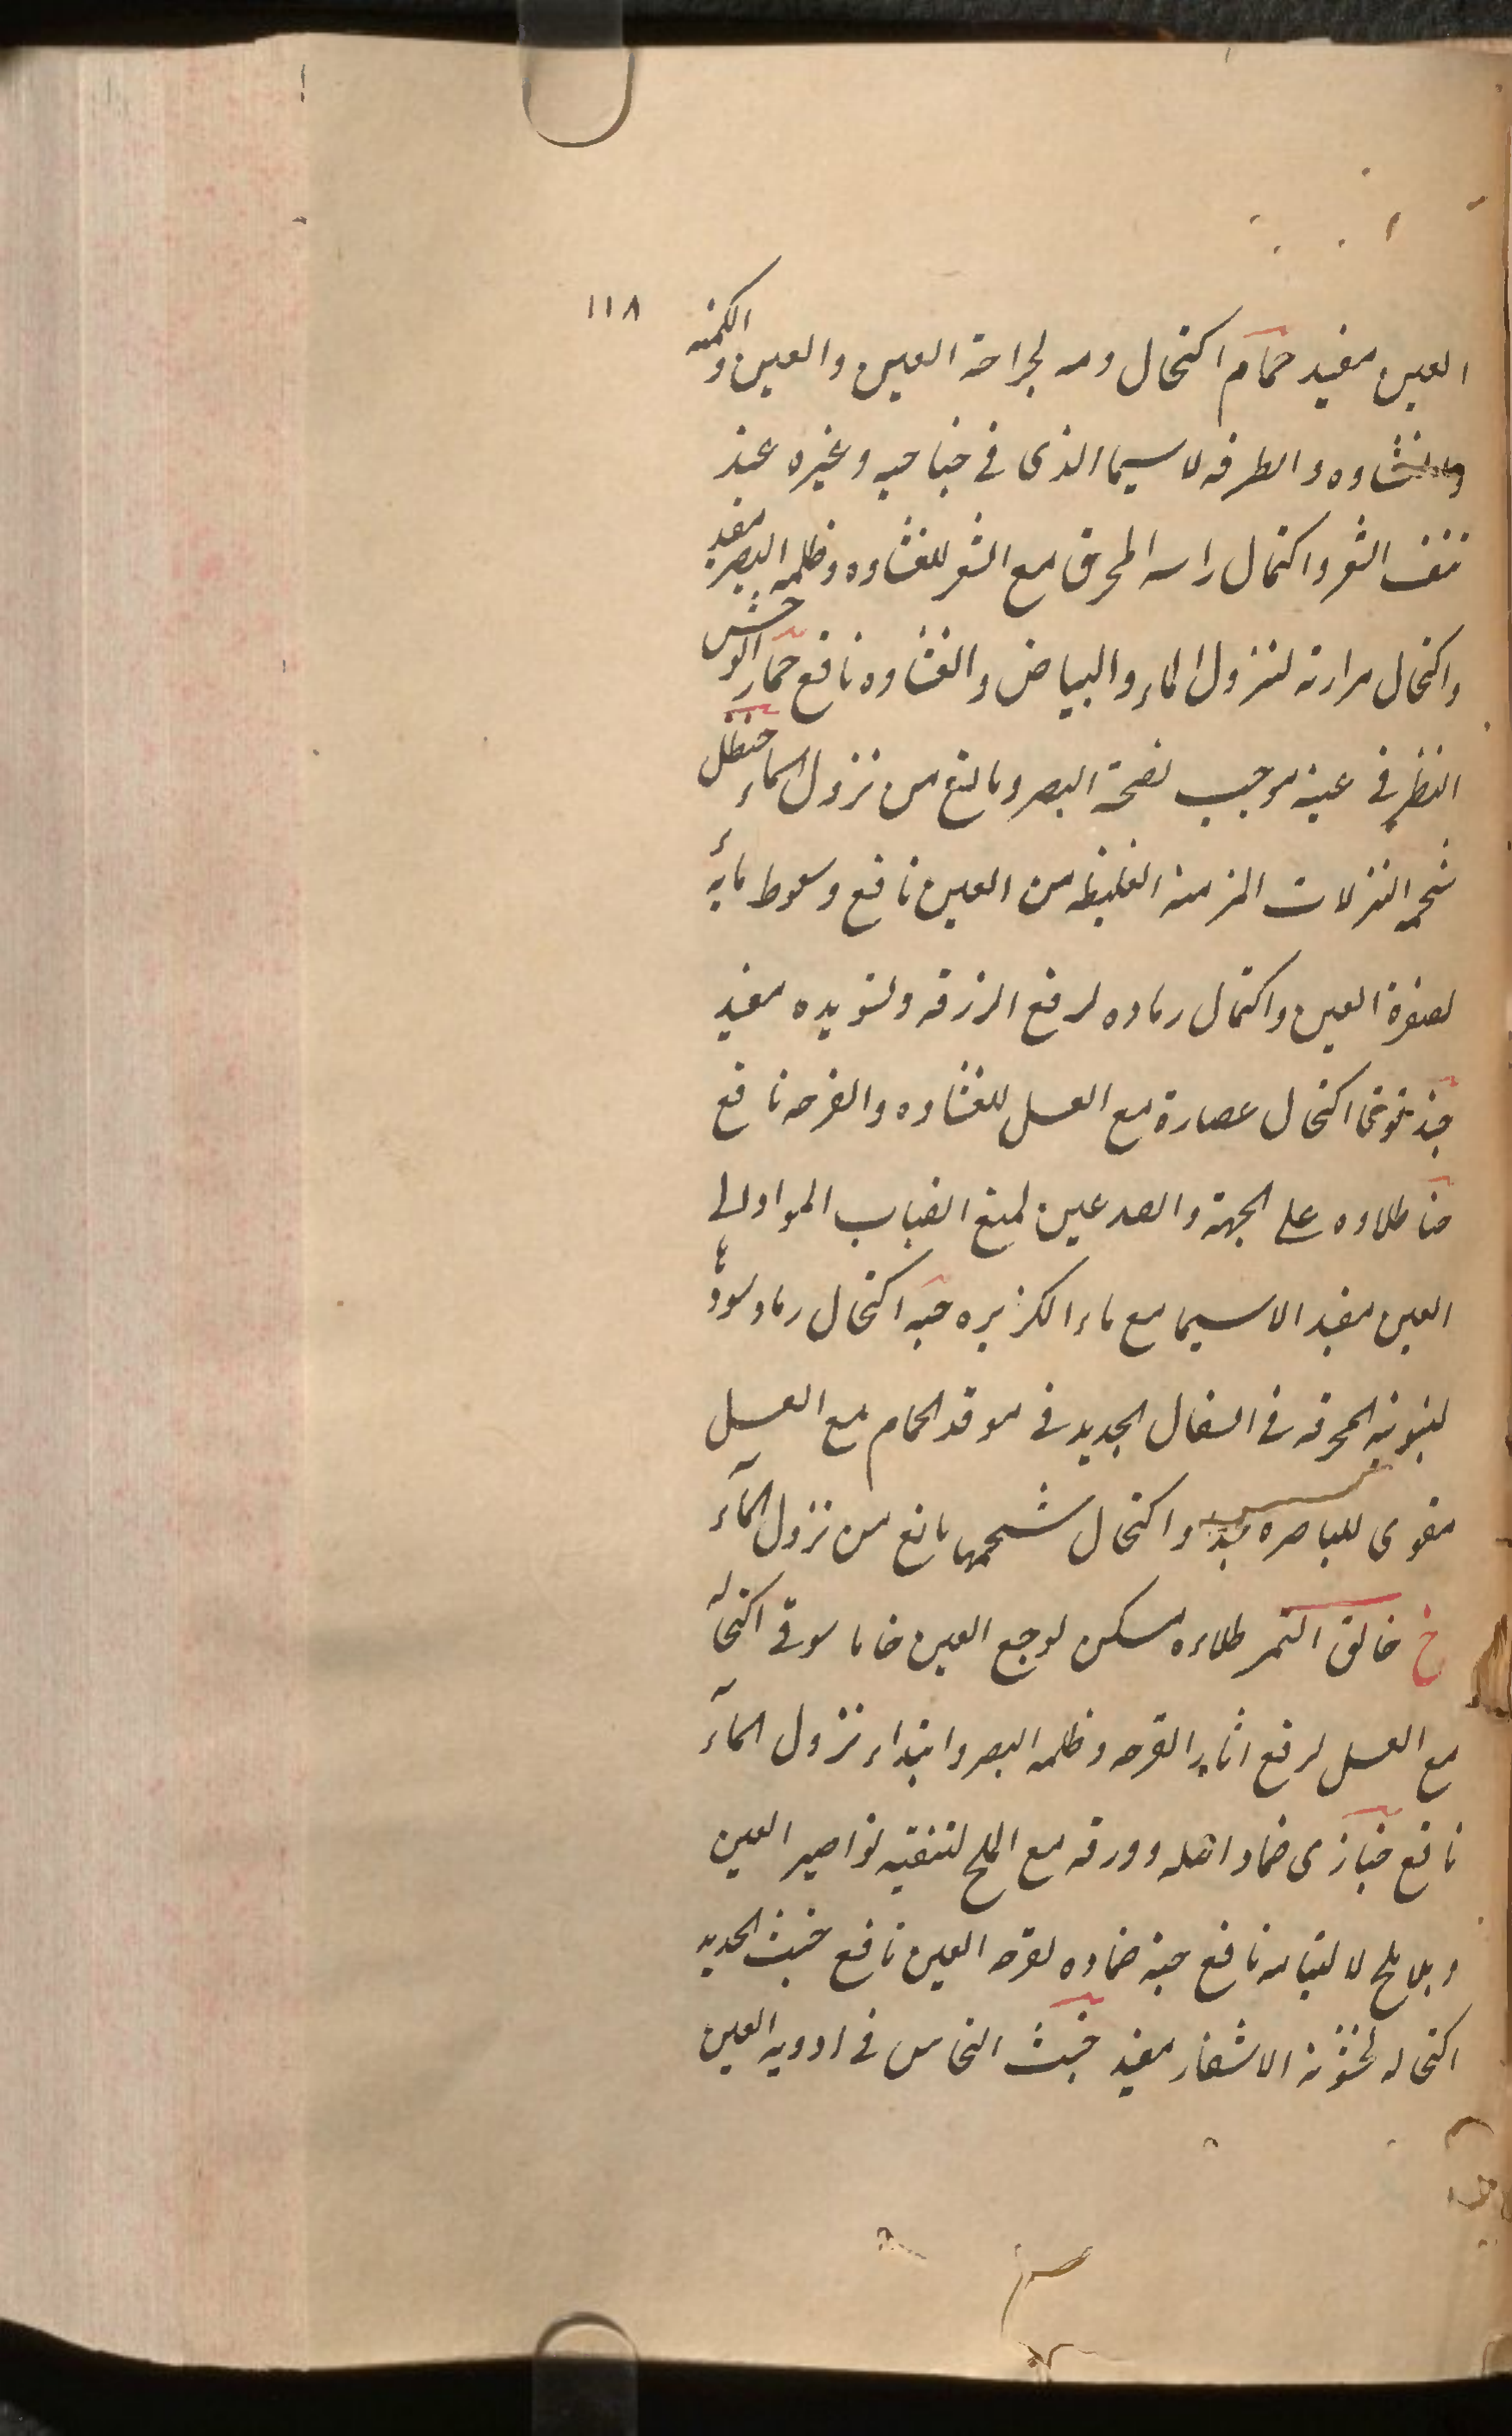 ١١٨
العين مفيد حمام اكتحال دمه لجراحة العين والعين والكمنه
والغشاوه والطرفه لاسيما الذى فى جناحيه وغيره عند
نتف الشعر واكتحال راسه المحرق مع الشعر للغشاوه وظلمه البصر مفيد
واكتحال مرارته لنزول الماء والبياض والغشاوه نافع حمار الوحش
النظر فى عينه موجب لصحة البصر ومانع من نزول الماء حنظل
شحمه النزلات المزمنه الغليظه من العين نافع وسعوط مائه
لصفرة العين واكتحال رماده لرفع الزرقه وتسويده مفيد
اكتحال عصارة مع العسل للغشاوه والقرحه نافع
حنا طلاوه على الجبهة والصدعين لمنع انصباب المواد الى
العين مفيد الاسيما مع ماء الكزبره حيه اكتحال رماد سوداء
المحرقه فى السفال الجديد فى موقد الحمام مع العسل
مقوى للباصره واكتحال شحمها مانع من نزول المآء
خ خانق النمر طلاءه مسكن لوجع العين خاماسوقى اكتحاله
مع العسل لرفع اثار القرحه وظلمه البصر وابتداء نزول المآء
نافع خبازى ضماد اصله وورقه مع الملح لتنقيه نواصير العين
وبلا ملح لالتيامه نافع ضماده لقرحه العين نافع خبث الحديد
اكتحاله لخشونة الاشفار مفيد خبث النحاس فى ادويه العين